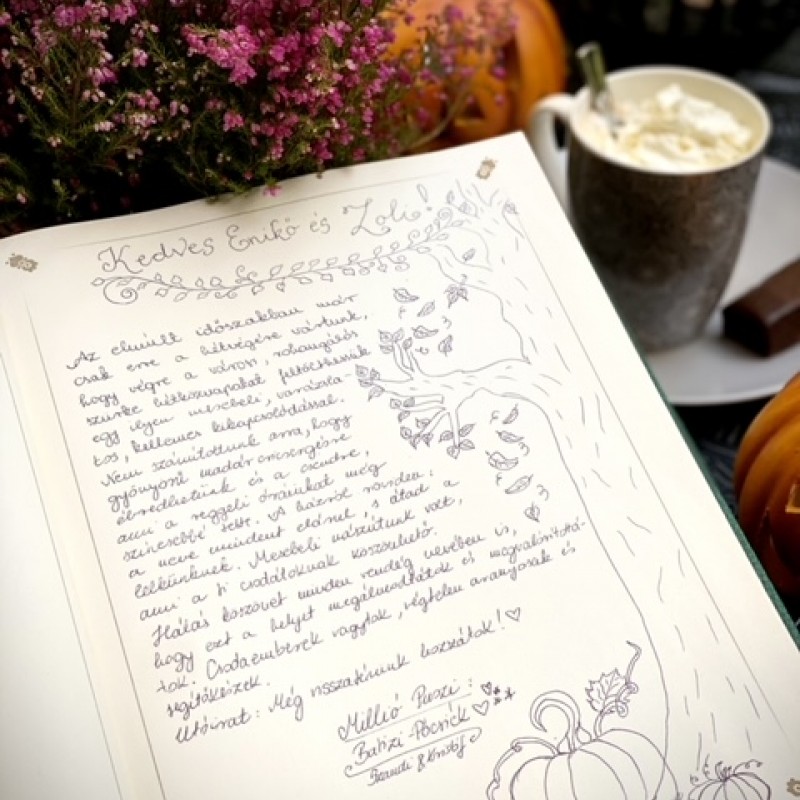 Kedves Enikő és Zoli!
Az elmúlt időszakban már
csak erre a hétvégére vártunk,
hogy végre a városi, rohangálós
szürke hétköznapokat feltölthessük
egy ilyen mesebeli, varázsla-
tos, kellemes kikapcsolódással.
Nem számítottunk arra, hogy
gyönyörű madárcsicsergésre
ébredhetünk és a csendre,
ami a reggeli óráinkat még
színesebbé tette. A házról röviden:
a neve mindent elárul, s átad a
lelkünknek. Mesebeli nászútunk volt,
ami a ti csodátoknak köszönhető.
Hálás köszönet minden vendég nevében is,
hogy ezt a helyet megálmodtátok és megvalósítottá-
tok. Csodaemberek vagytok, végtelen aranyosak és
segítőkészek.
Utóirat: Még visszatérünk hozzátok!
Millió Puszi:
Babizi-Pőcsick
& Kristóf